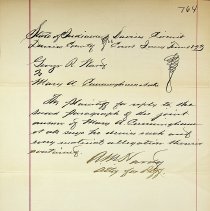 764
State of Indiana, Daviess Circuit
Daviess County SS Court June Term 189
George R. Harvy
vs
Mary A. Cunningham et al
The Plaintiff for reply to the
second paragraph of the joint
answer of Mary A. Cunningham
et al says he denies each and
every material allegation therein
contained.
Atty for Plff.